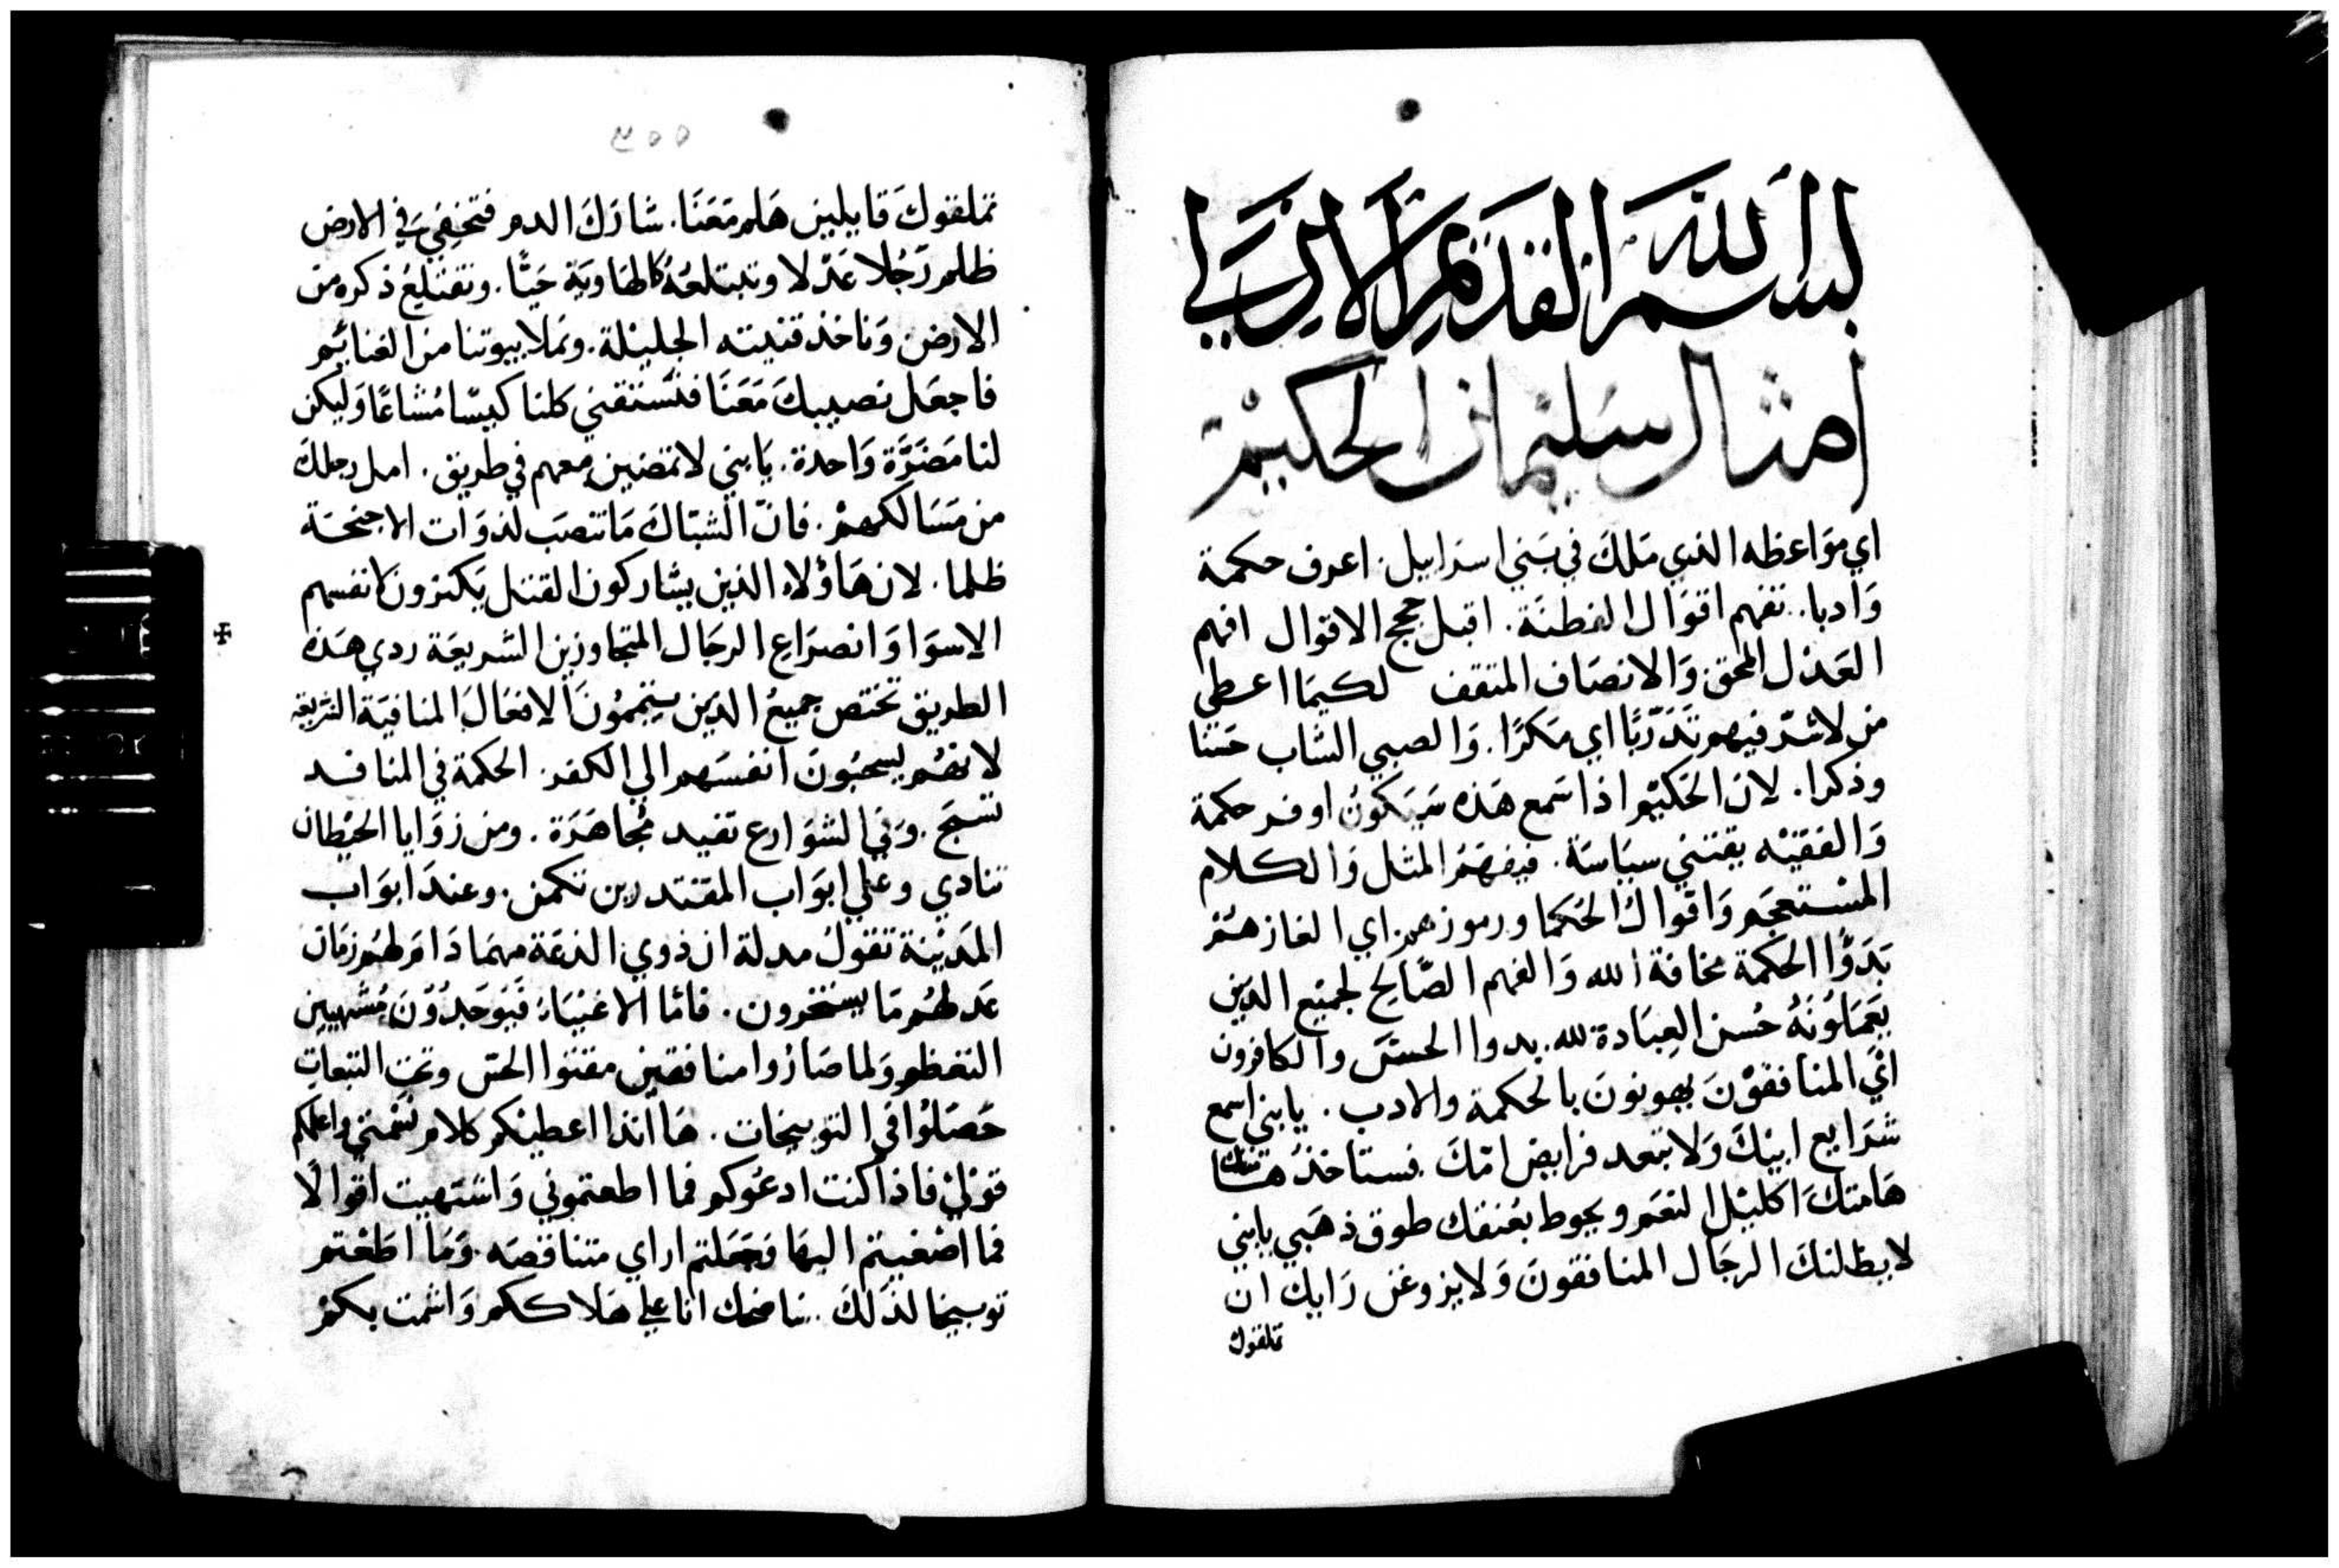 بسم الله القديم الازلي
امثال سليمان الحكيم
اي مواعظه الذي ملك في بني اسرايل. اعرف حكمة
وادبا. تفهم اقوال الفطنة. اقبل حجج الاقوال افهم
العدل المحق والانصاف المثقف لكيما اعطي
من لا شر فيهم تدربًا اي مكرًا. والصبي الشاب حسًا
وذكرا. لان الحكيم اذا سمع هذه سيكون اوفر حكمة
والفقيه يقتني سياسة. فيفهم المثل والكلام
المستعجم واقوال الحكما ورموزهم. اي الغازهم
بدوًا الحكمة مخافة الله والفهم الصالح لجميع الدين
يعملونه حسن العبادة لله. بدوا الحسّ والكافرون
اي المنافقون يهونون بالحكمة والادب. يابني اسمع
شرايع ابيك ولا تبعد فرايض امك. فستاخذ هامتك
هامتك اكليل النعم ويحوط بعنقك طوق ذهبي يابني
لا يظلنك الرجال المنافقون ولا يزوغن رايك ان
تملقوك
٢٥٥
تملقوك قايلين هلم معنا. شارك الدم فتخفي في الارض
ظلم رجلا عدلا ونبتلعه كالهاوية حيًا. ونقتلع ذكره من
الارض وناخذ قنيته الجليلة. ونملا بيوتنا من الغنايم
فاجعل نصيبك معنا فنستقني كلنا كيسًا مشاعًا وليكن
لنا مصرّة واحدة. يابني لا تمضين معهم في طريق. امل رجلك
من مسالكهم. فان الشباك ما تنصب لذوات الاجنحة
ظلما. لان هاولاء الذين يشاركون القتل يكنزون لانفسهم
الاسوا وانصراع الرجال المتجاوزين الشريعة ردي هذه
الطريق تختص جميع الدين يتممون الافعال المنافية الشريعة
لانهم يسحبون انفسهم الي الكفر. الحكمة في المنافد
تسبح. وفي الشوارع تفيد مجاهرة. ومن زوايا الحيطان
تنادي وعلي ابواب المقتدرين تكمن. وعند ابواب
المدينة تقول مدلة ان ذوي الدعة مهما دام لهم زمان
عدلهم ما يستخرون. فاما الاغنياء فيوجدون مشتهيين
التعظم ولما صاروا منافقين مقتوا الحس وتحت التبعات
حصلوا في التوبيخات. ها انذا اعطيكم كلام نسمتي واعلمكم
قولي فاذا كنت ادعوكم فما اطعتموني واشتهيت اقوالًا
فما اصغيتم اليها وجعلتم اراي متناقصه. وما اطعتم
توبيخا لذلك. ساضحك انا علي هلاككم واشمت بكم